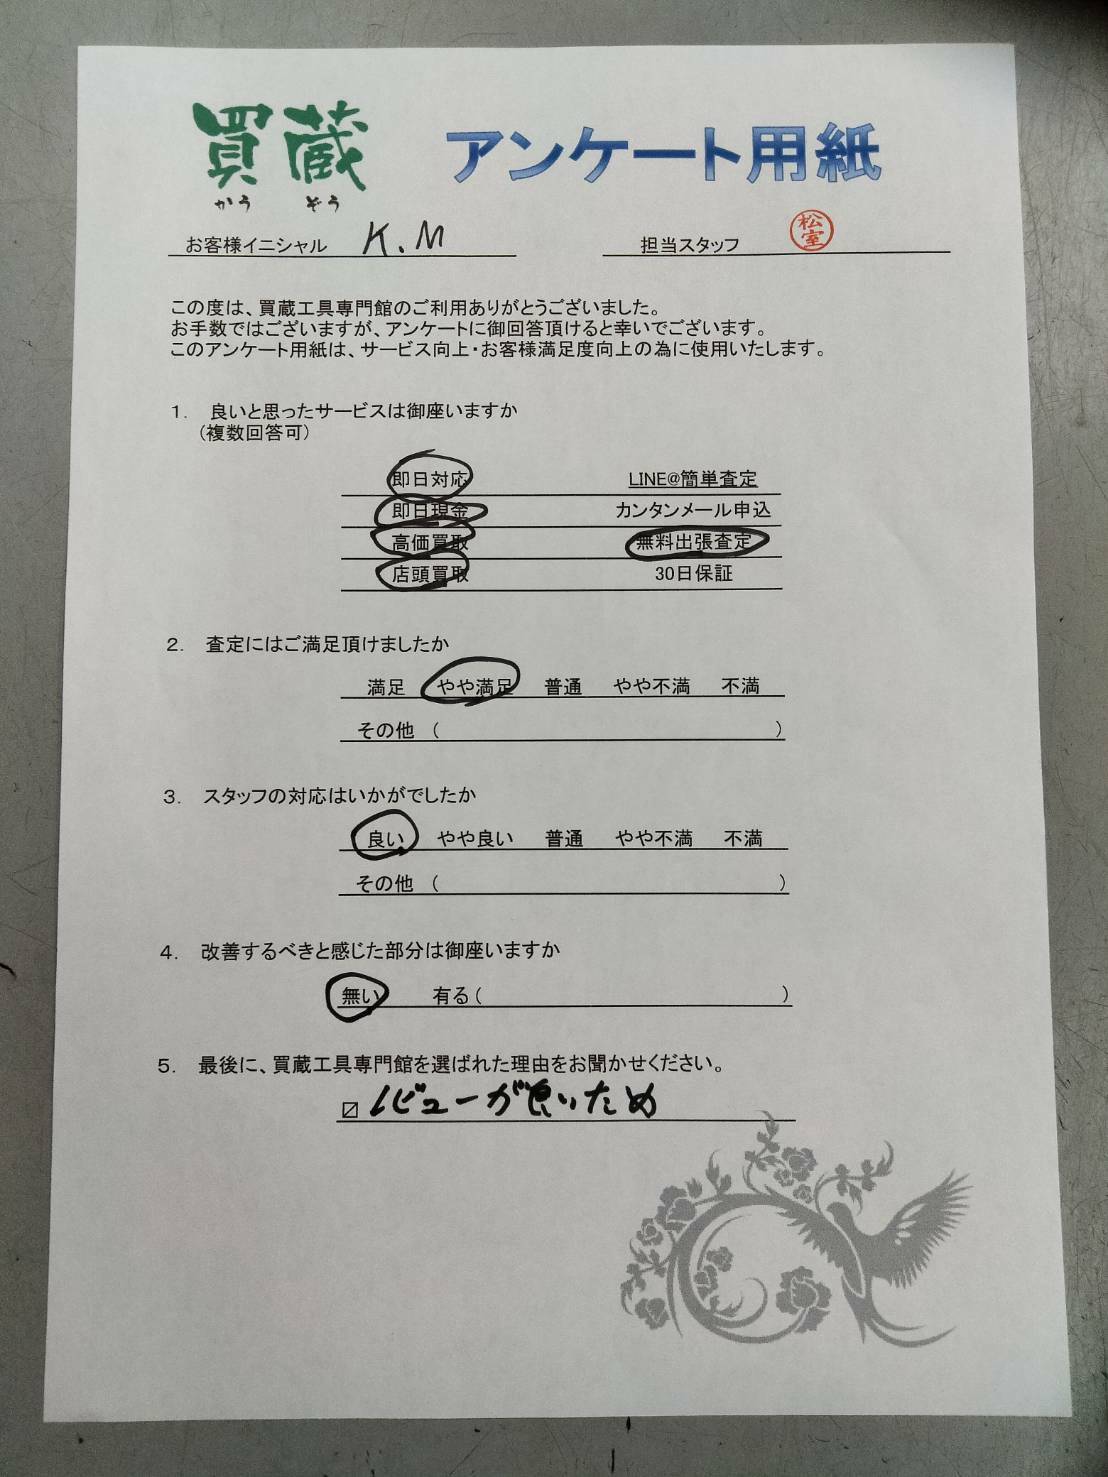 買蔵 アンケート用紙
かう ぞう
お客様イニシャル K.M 担当スタッフ 松室
この度は、買蔵工具専門館のご利用ありがとうございました。
お手数ではございますが、アンケートに御回答頂けると幸いでございます。
このアンケート用紙は、サービス向上・お客様満足度向上の為に使用いたします。
1. 良いと思ったサービスは御座いますか
(複数回答可)
即日対応 LINE@簡単査定
即日現金 カンタンメール申込
高価買取 無料出張査定
店頭買取 30日保証
2. 査定にはご満足頂けましたか
満足 やや満足 普通 やや不満 不満
その他 ( )
3. スタッフの対応はいかがでしたか
良い やや良い 普通 やや不満 不満
その他 ( )
4. 改善するべきと感じた部分は御座いますか
無い 有る( )
5. 最後に、買蔵工具専門館を選ばれた理由をお聞かせください。
☑ レビューが良いため